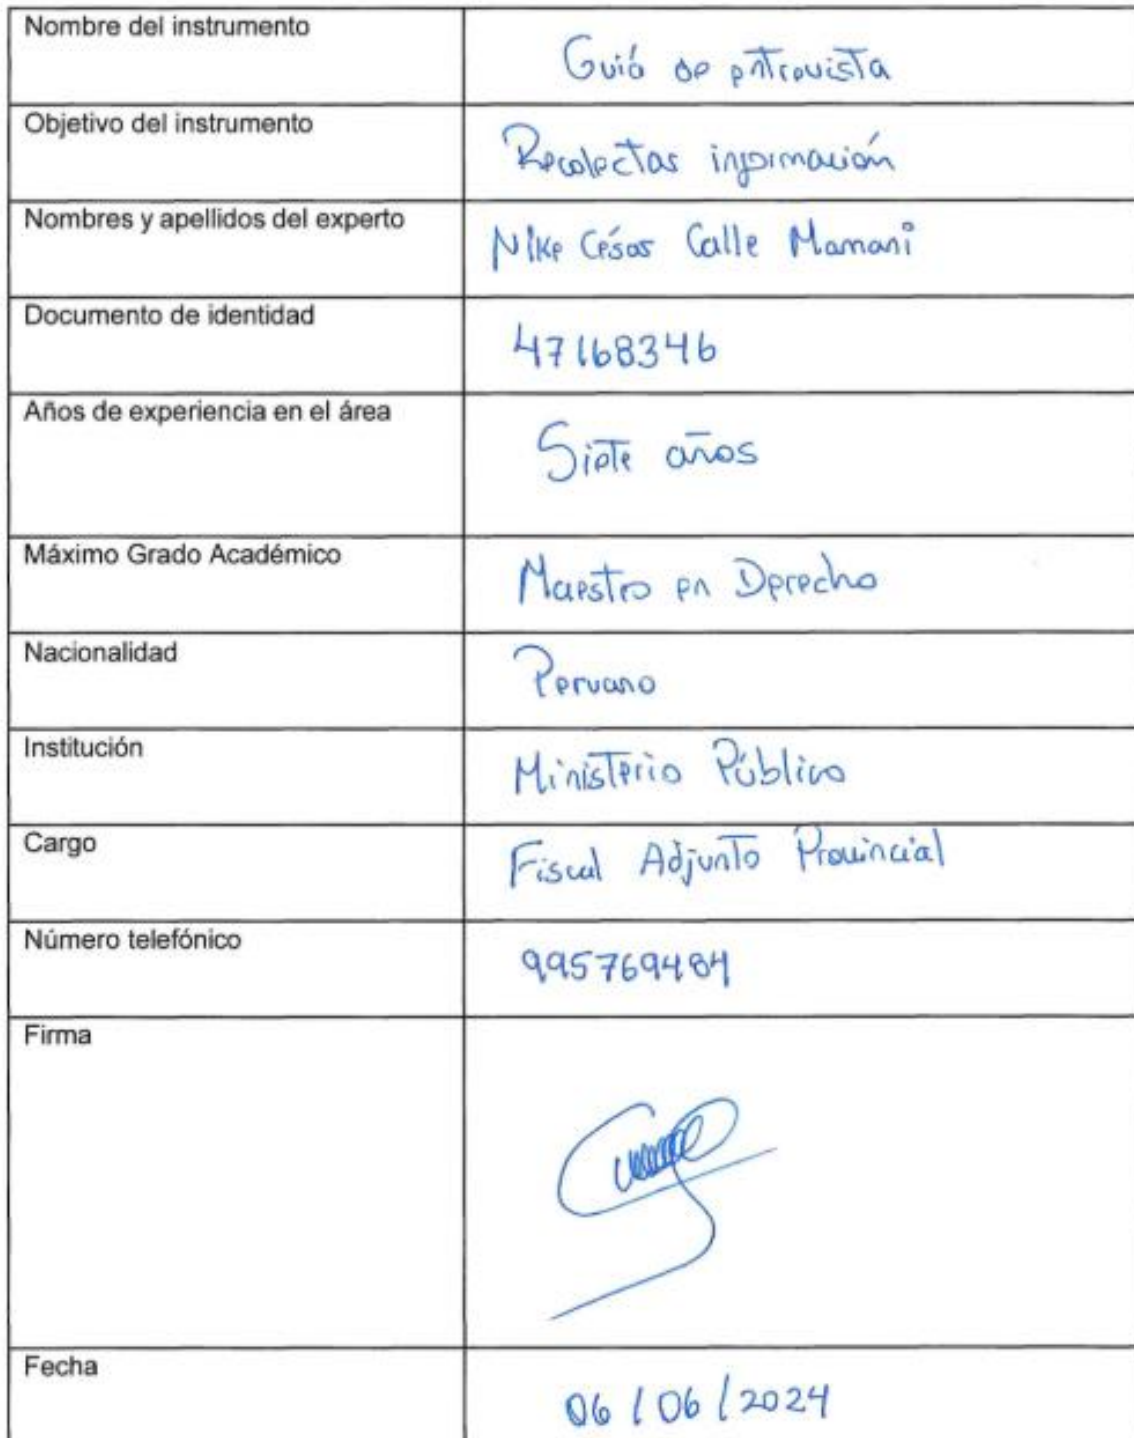 Nombre del instrumento
Guiá de entrevista
Objetivo del instrumento
Recolectar información
Nombres y apellidos del experto
Nike César Calle Mamani
Documento de identidad
47168346
Años de experiencia en el área
Siete años
Máximo Grado Académico
Maestro en Derecho
Nacionalidad
Peruano
Institución
Ministerio Público
Cargo
Fiscal Adjunto Provincial
Número telefónico
995769484
Firma
Fecha
06/06/2024